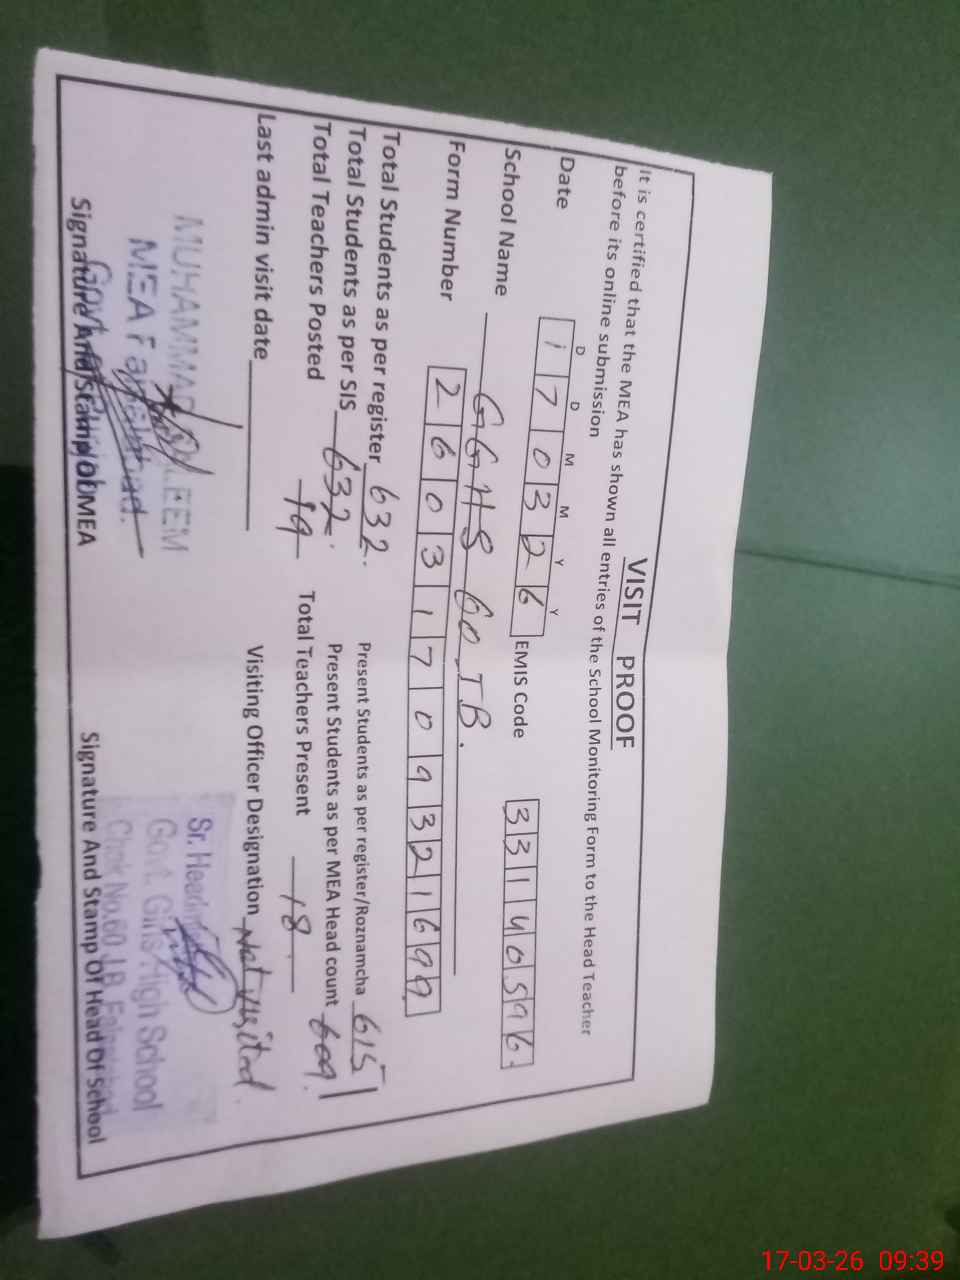 VISIT PROOF
It is certified that the MEA has shown all entries of the School Monitoring Form to the Head Teacher
before its online submission
D D M M Y Y
Date 170326 EMIS Code 33140596
School Name GGHS 60 JB.
Form Number 26031709321699
Total Students as per register 632. Present Students as per register/Roznamcha 615
Total Students as per SIS 632. Present Students as per MEA Head count 609.
Total Teachers Posted 19 Total Teachers Present 18.
Last admin visit date Visiting Officer Designation Not visited.
MUHAMMAD EEM
MEA Faisalabad.
Signature And Stamp Of MEA
Sr. Head
Govt. Girls High School
Chak No.60 J.B. Faisalabad
Signature And Stamp Of Head Of School
17-03-26 09:39